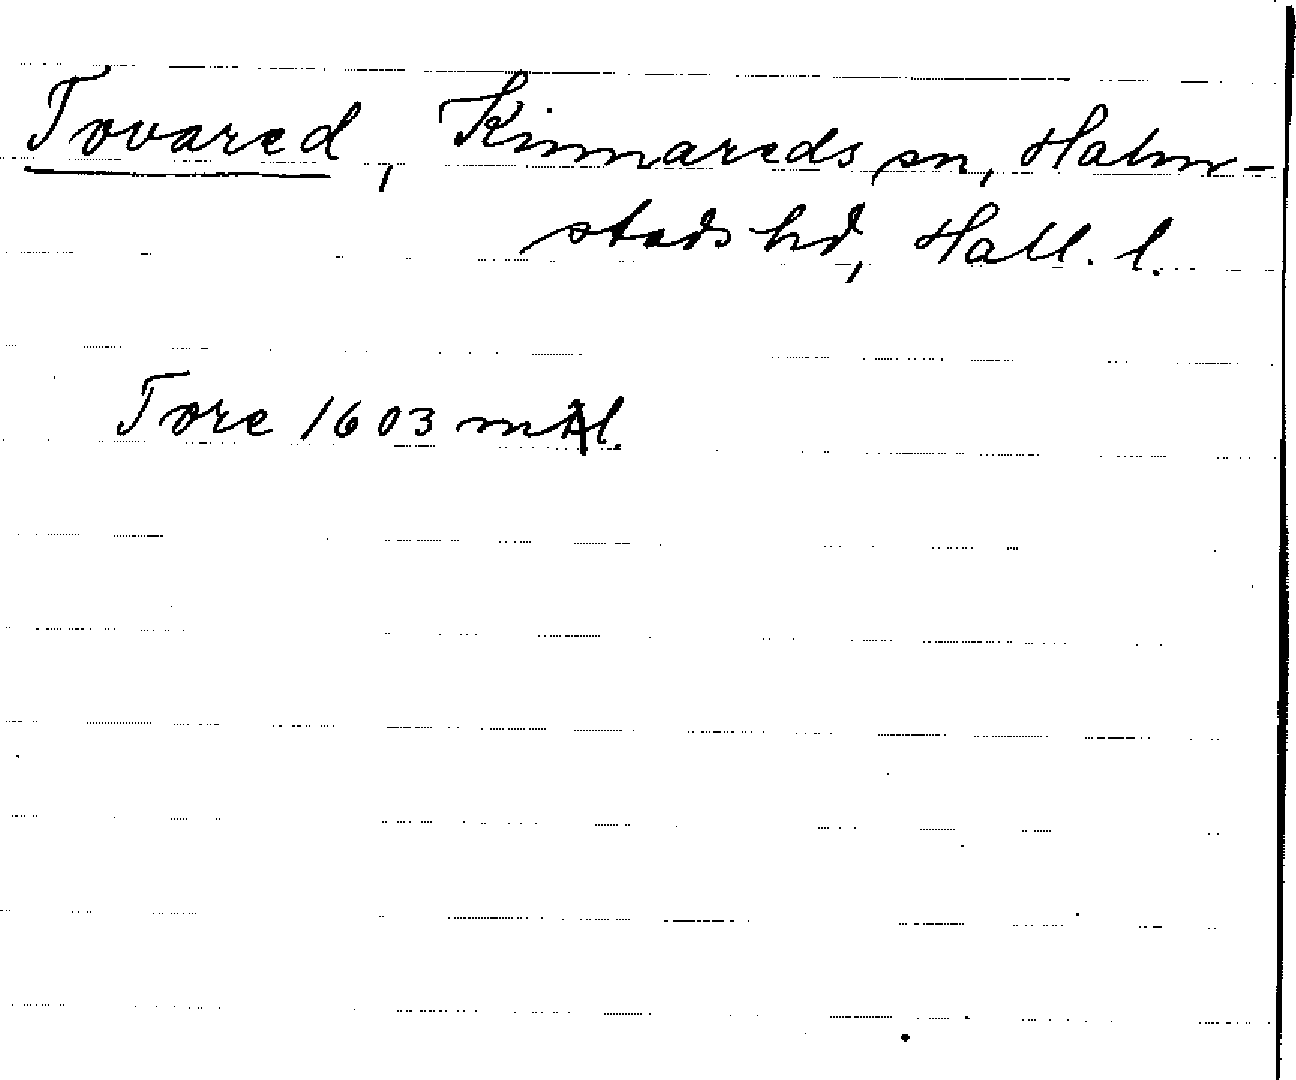 Tovared, Kinnareds sn, Halm-
stads hd, Hall. l.
Tore 1603 mtl.